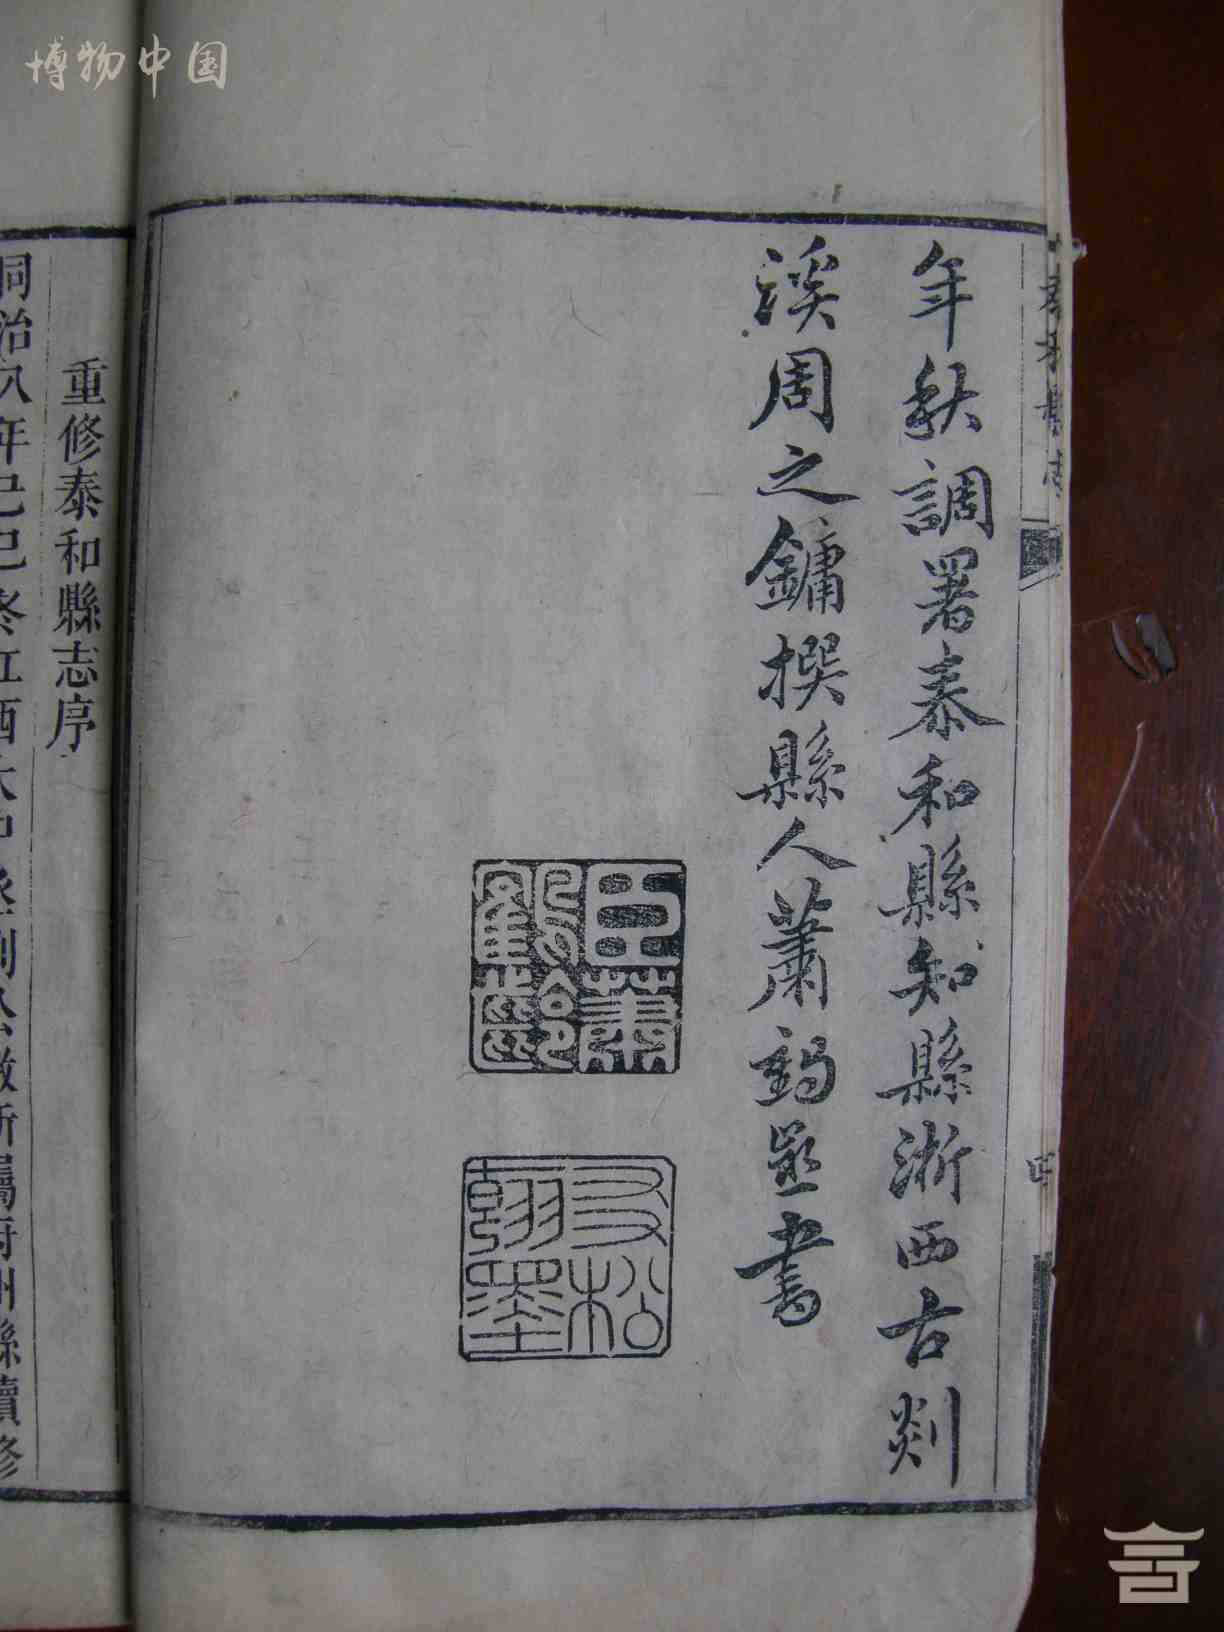 博物中国
泰和縣志
四
年秋調署泰和縣知縣浙西古剡
溪周之鏞撰縣人蕭鶴齡書
臣蕭鶴齡
友松翰墨
重修泰和縣志序
同治八年己巳冬江西大中丞劉公檄所屬府州縣續修